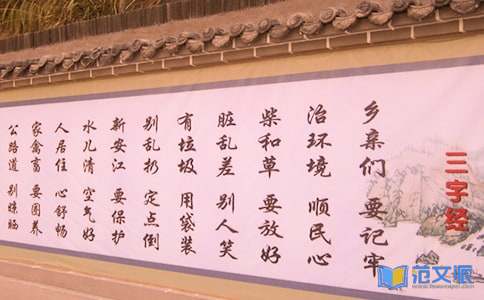 三字经
乡亲们 要记牢
治环境 顺民心
柴和草 要放好
脏乱差 别人笑
有垃圾 用袋装
别乱扔 定点倒
新安江 要保护
水儿清 空气好
人居住 心舒畅
家禽畜 要圈养
公路道 别晾晒
范文垠